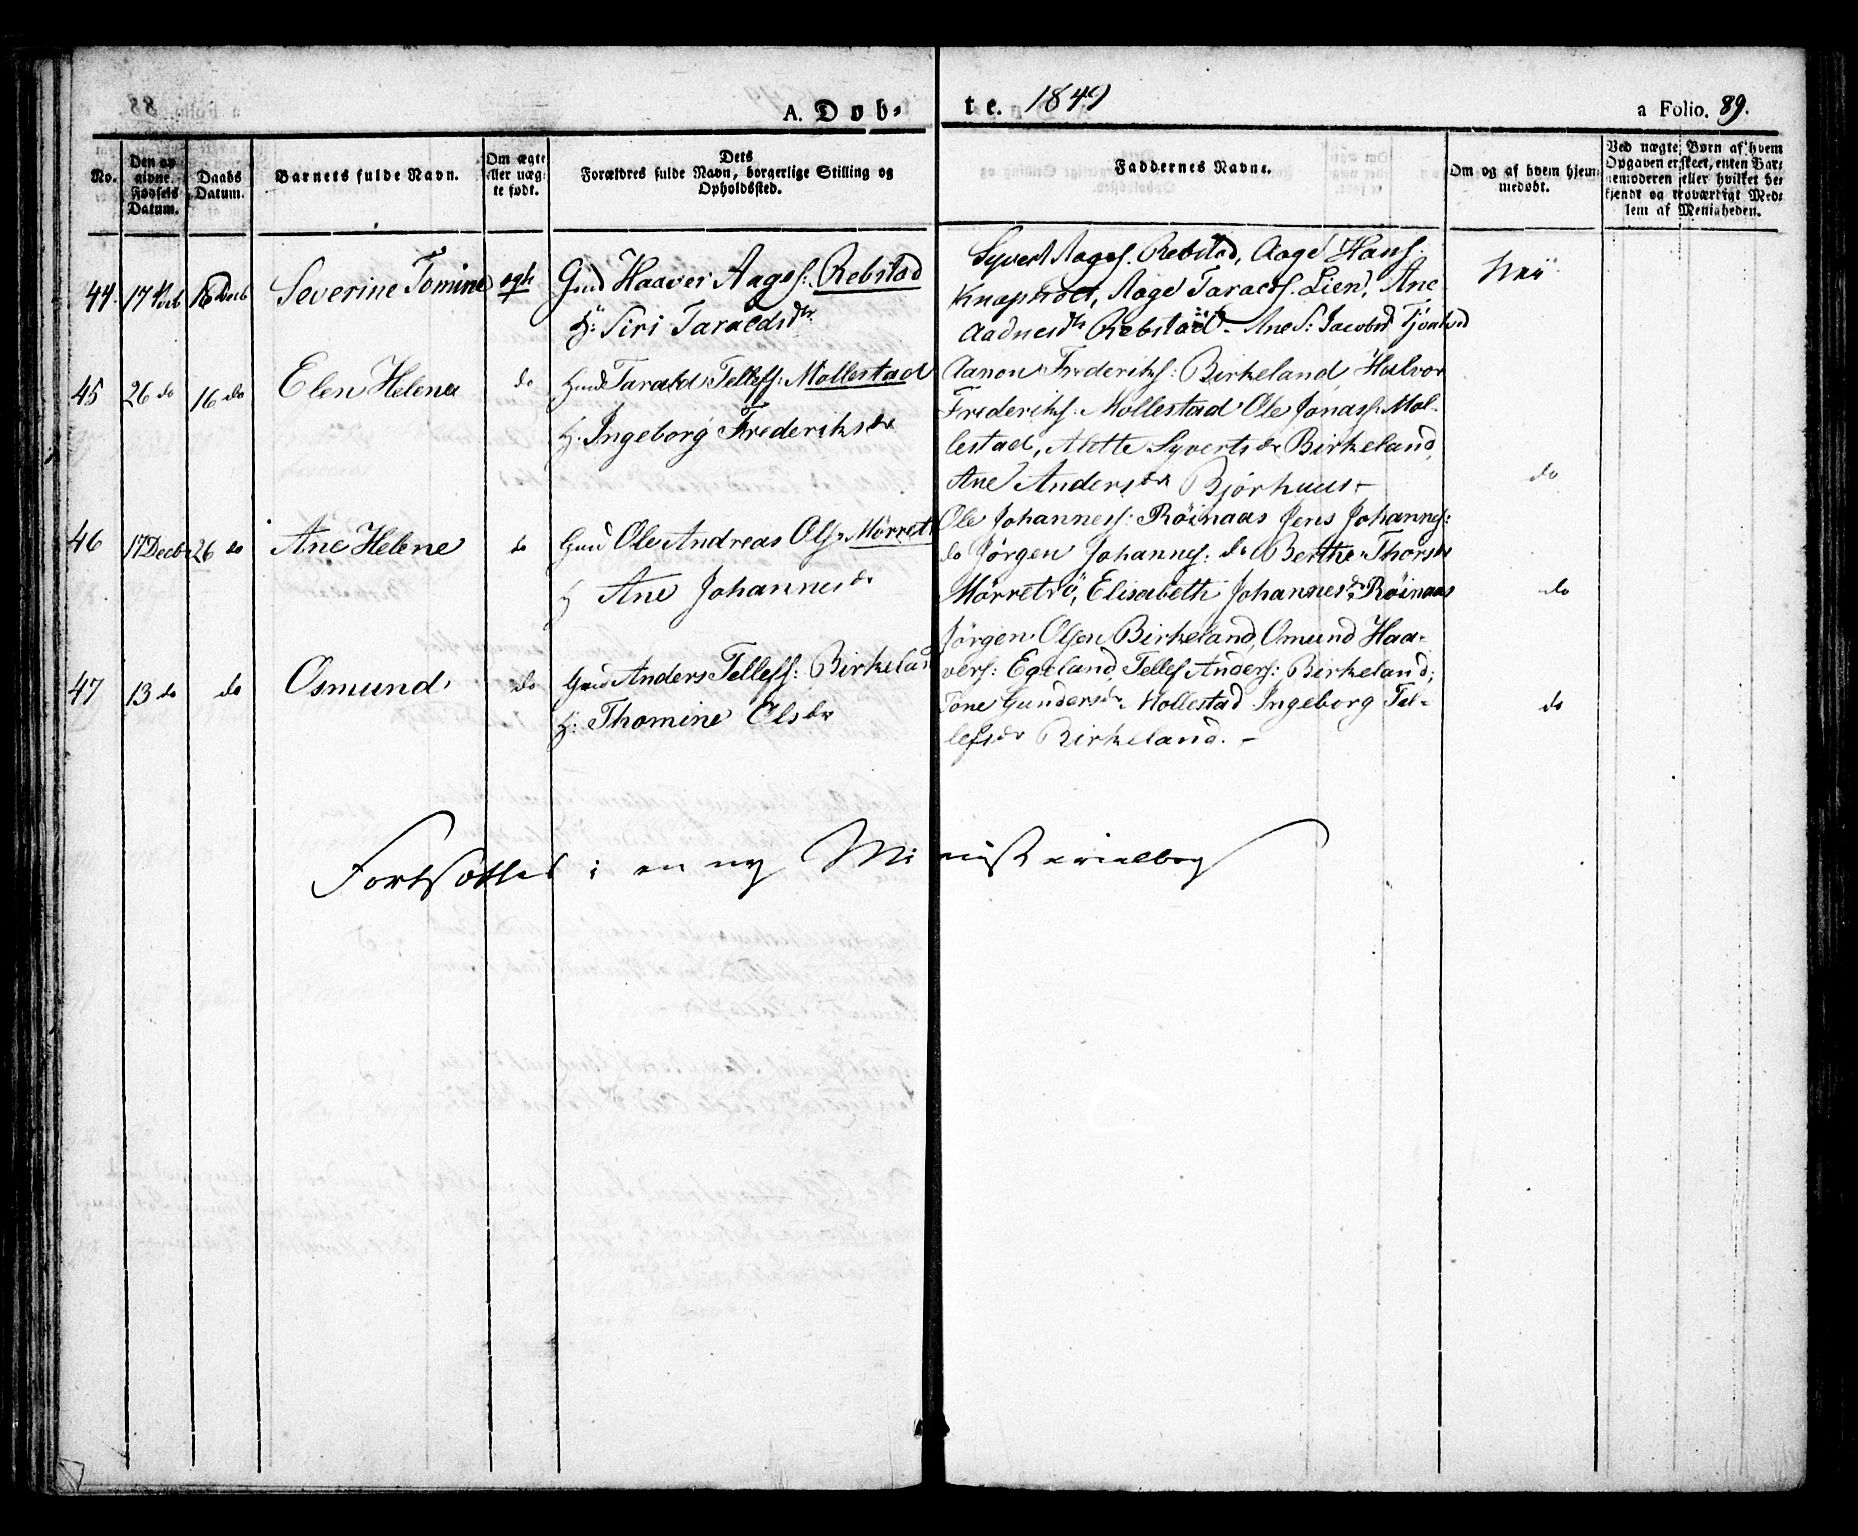 A. Døb-
te. 1849
a Folio. 89.
No.
Den opgivne Fødsels Datum.
Daabs Datum.
Barnets fulde Navn.
Om ægte eller uægte født.
Dets Forældres fulde Navn, borgerlige Stilling og Opholdssted.
Faddernes Navne.
Om og af hvem hjemmedøbt.
Ved uægte Børn af hvem Opgaven er skeet, enten Barnemoderen eller hvilket bekjendt og troværdigt Medlem af Menigheden.
44. 17 Novb Decb Severine Tomine egte Gmd Haaver Aages: Rebstad
H: Siri Taraldsdtr
Syvert Aages. Rebstad, Aage Hans.
Knapholt, Aage Taralds. Lien, Ane
Aadnesdtr Rebstad. Ane S: Jacobsd
Nei
45 26 do 16 do Elen Helene do Gmd Tarald Tellefs: Mollestad
H. Ingeborg Frederiksdr
Aanon Frederiks: Birkeland, Halvor
Frederiks. Mollestad Ole Jonass. Mol-
lestad, Alette Syvertsdr Birkeland,
Ane Andersdr Bjørhuus
do
46 17 Decbr 26 do Ane Helene do Gmd Ole Andreas Ols.
H Ane Johannesdr
Ole Johannes: Röinaas Jens Johannes:
do Jørgen Johannes: do Berthe Thorsdr
Mørretrö, Elisabeth Johannesdr Röinaas
do
47 13 do do Osmund do Gmd Anders Tellefs: Birkeland
H: Thomine Olsdr
Jørgen Olsen Birkeland, Omund Haa-
vers: Egeland, Tellef Anders: Birkeland;
Tone Gundersdr Mollestad Ingeborg Tel-
lefsdr Birkeland. -
do
Fortsættes i en ny Ministerialbog